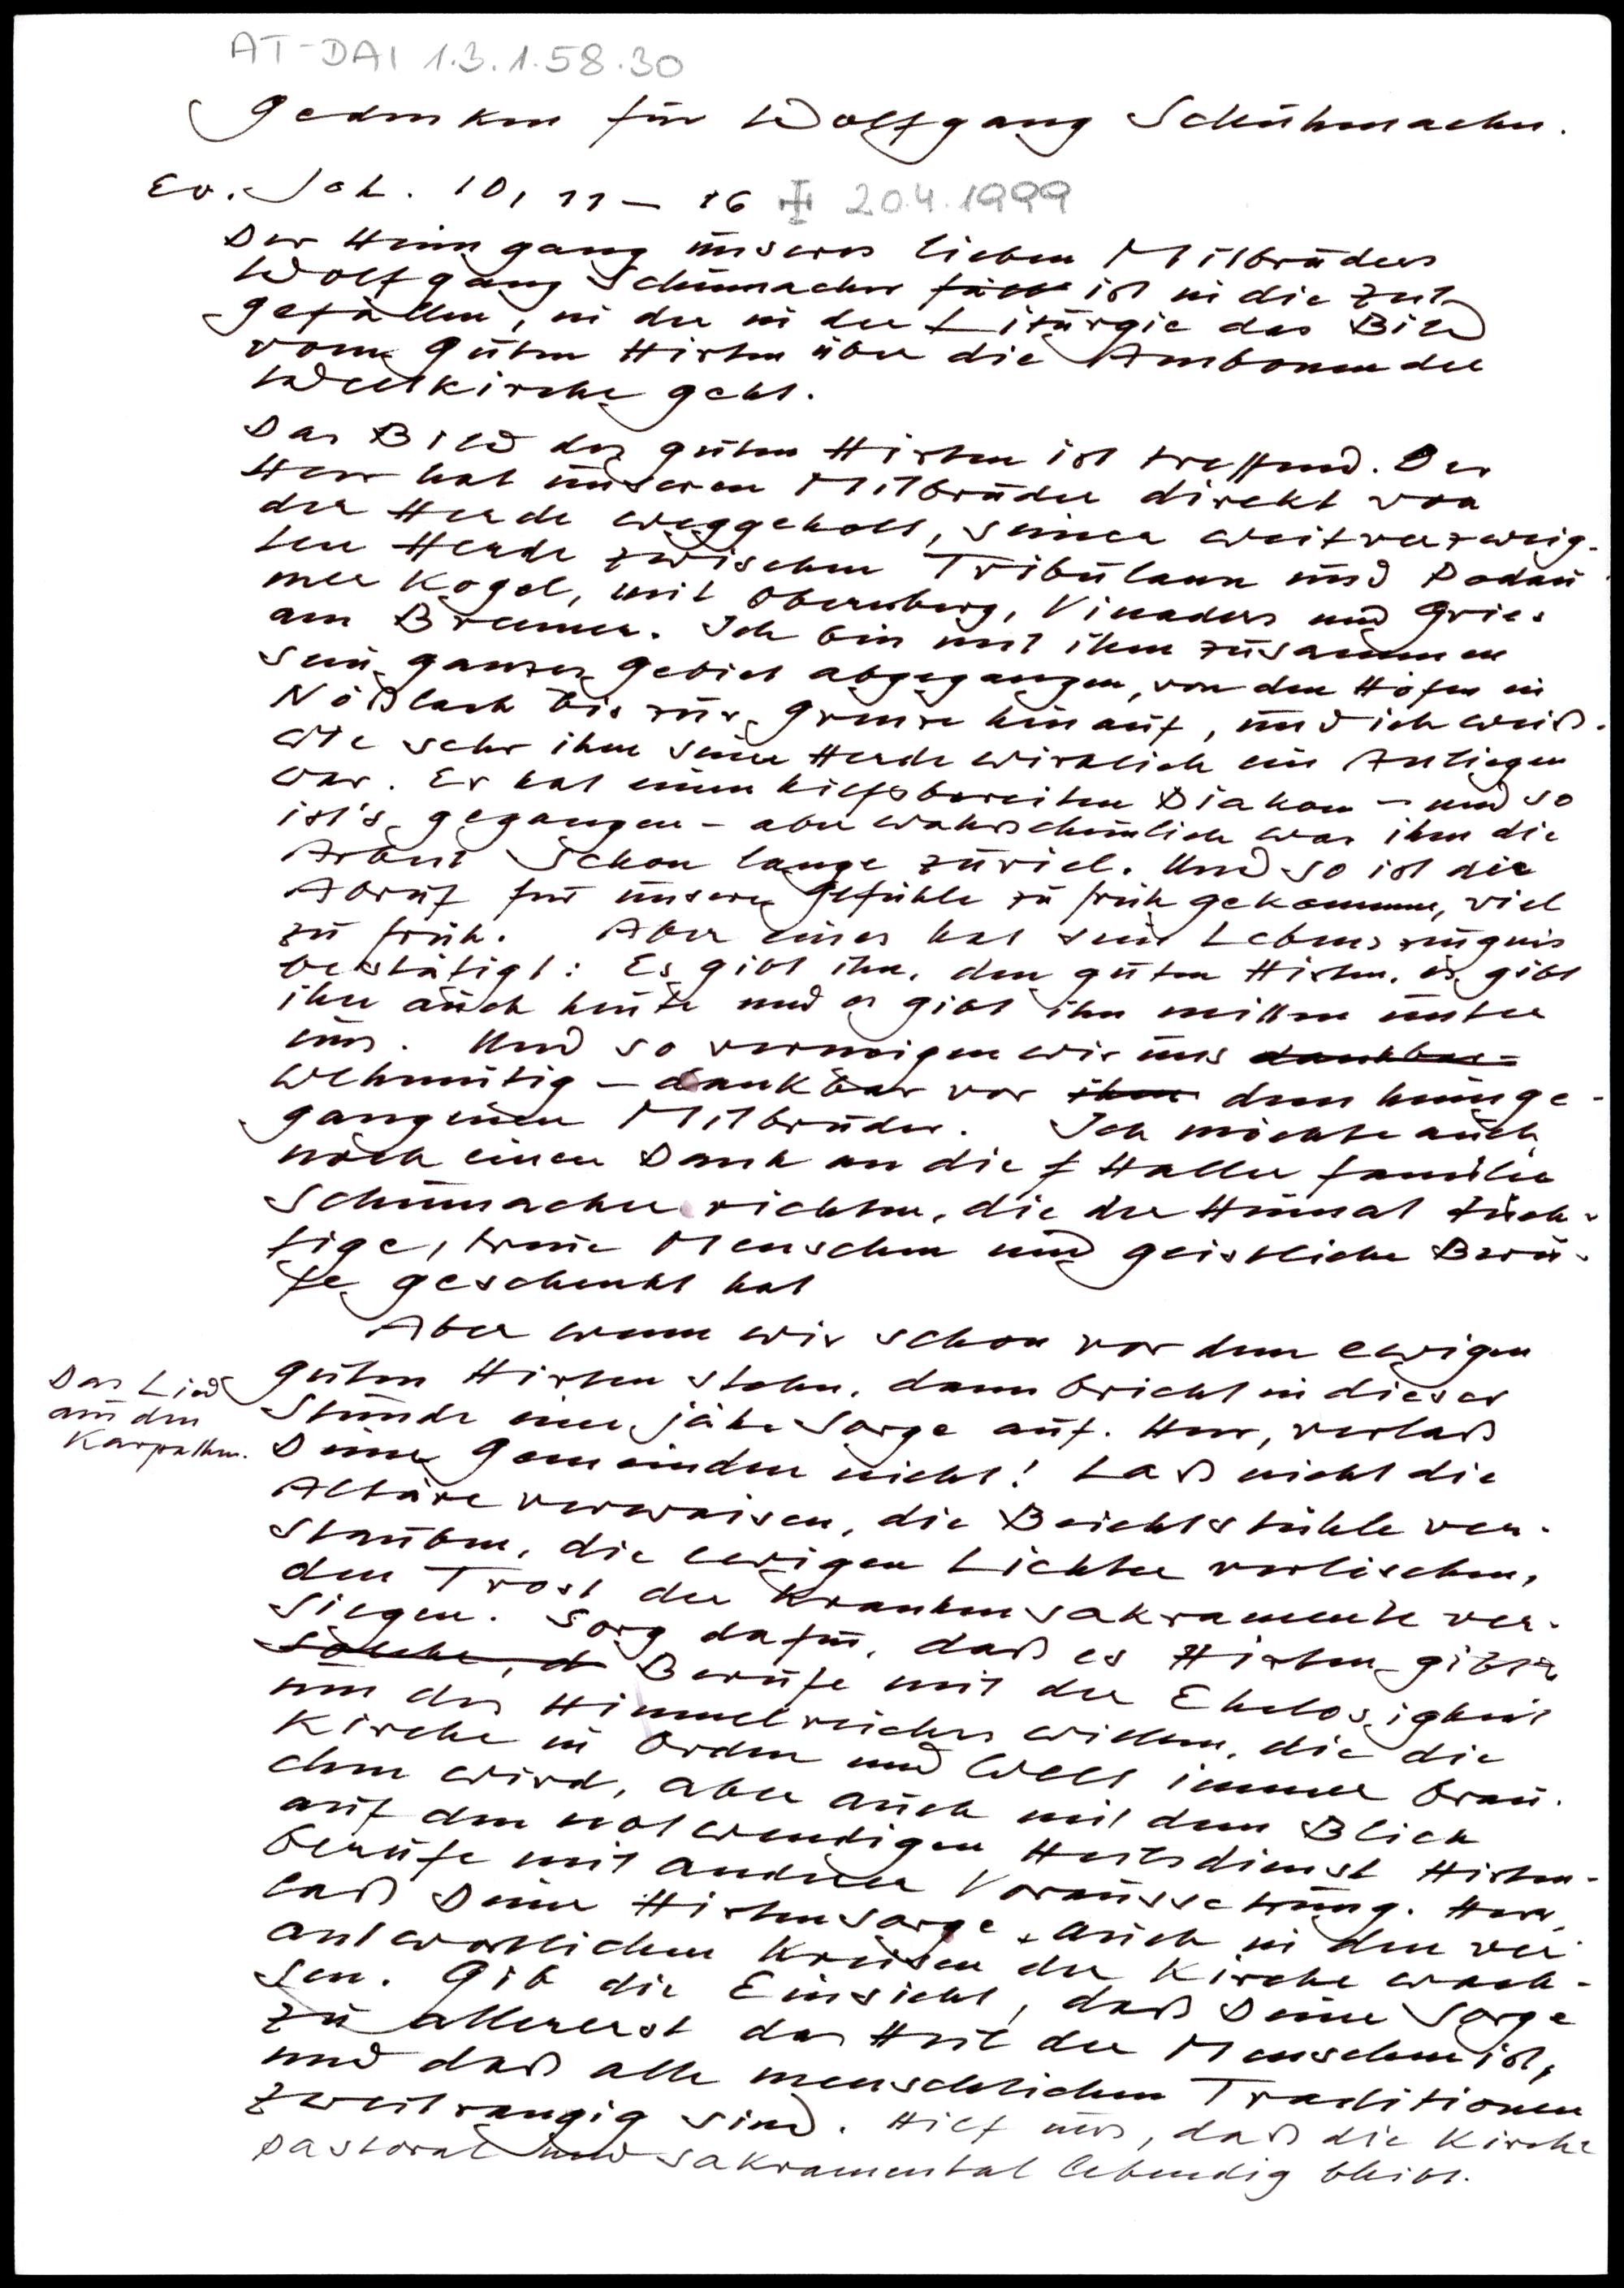 AT-DAI 1.3.1.58.30
Gedenken für Wolfgang Schuhmacher.
Ev. Joh. 10, 11 – 16 20.4.1999
Der Heimgang unseres lieben Mitbruders
Wolfgang Schumacher ist in die Zeit
gefallen, in der in der Liturgie das Bild
vom guten Hirten über die Ambonen der
Weltkirche geht.
Das Bild des guten Hirten ist treffend. Der
Herr hat unseren Mitbruder direkt von
der Herde weggeholt, seiner weitverzweig-
ten Herde zwischen Tribulaun und Padau-
ner Kogel, mit Obernberg, Vinaders und Gries
am Brenner. Ich bin mit ihm zusammen
sein ganzes Gebiet abgegangen, von den Höfen in
Nößlach bis zur Grenze hinauf, und ich weiß.
wie sehr ihm seine Herde wirklich ein Anliegen
war. Er hat einen hilfsbereiten Diakon – und so
ist's gegangen – aber wahrscheinlich war ihm die
Arbeit schon lange zuviel. Und so ist der
Abruf für unsere Gefühle zu früh gekommen, viel
zu früh. Aber eines hat sein Lebenszeugnis
bestätigt: Es gibt ihn, den guten Hirten, es gibt
ihn auch heute und es gibt ihn mitten unter
uns. Und so verneigen wir uns dankbar-
wehmütig – dankbar vor ihm dem heimge-
gangenen Mitbruder. Ich möchte auch
noch einen Dank an die Haller Familie
Schumacher richten, die der Heimat tüch-
tige, treue Menschen und geistliche Beru-
fe geschenkt hat
Aber wenn wir schon vor dem ewigen
guten Hirten stehn, dann bricht in dieser
Das Lied
aus den
Karpathen.
Stunde eine jähe Sorge auf. Herr, verlaß
Deine Gemeinden nicht! Laß nicht die
Altäre verwaisen, die Beichtstühle ver-
stauben, die ewigen Lichter verlöschen,
den Trost der Krankensakramente ver-
siegen. Sorg dafür, daß es Hirten gibt
solche, d Berufe mit der Ehelosigkeit
um des Himmelreiches willen, die die
Kirche in Orden und Welt immer brau-
chen wird, aber auch mit dem Blick
auf den notwendigen Heilsdienst Hirten-
berufe mit anderer Voraussetzung. Herr,
laß Deine Hirtensorge auch in den ver-
antwortlichen Kreisen der Kirche wach-
sen. Gib die Einsicht, daß Deine Sorge
zu allererst das Heil der Menschen ist,
und daß alle menschlichen Traditionen
zweitrangig sind. Hilf uns, daß die Kirche
pastoral und sakramental lebendig bleibt.